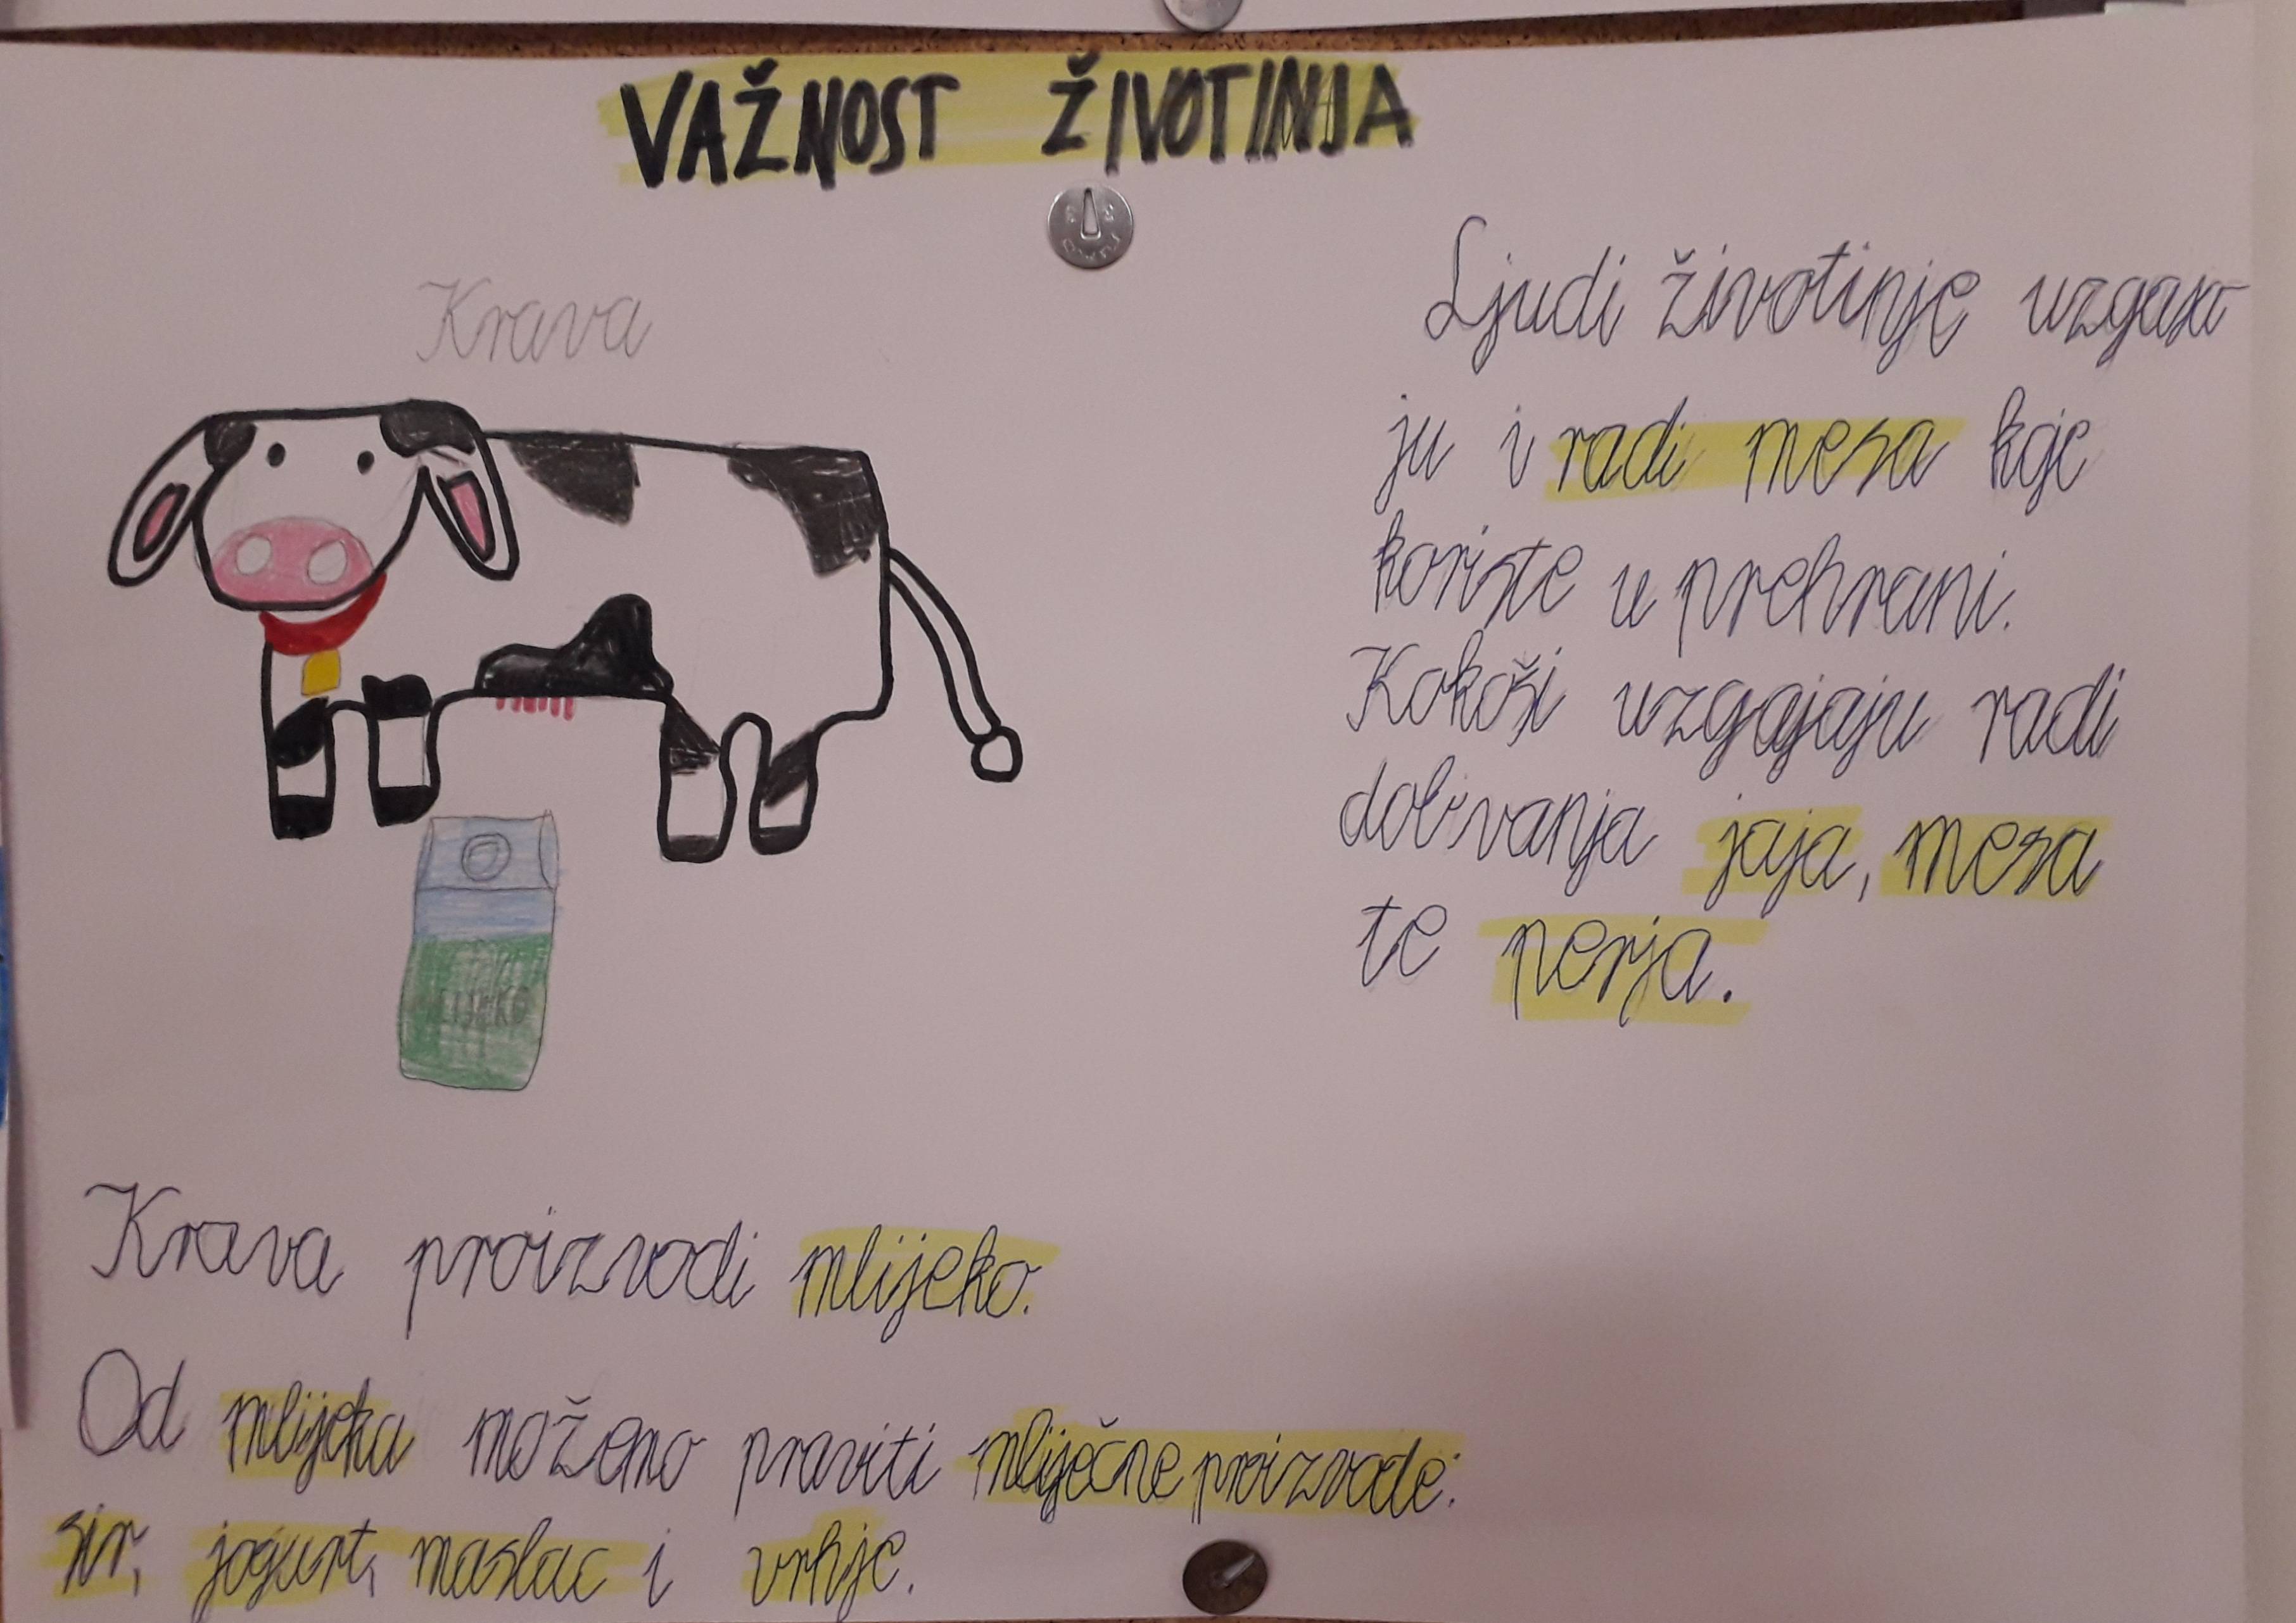 VAŽNOST ŽIVOTINJA
Krava
MLIJEKO
Ljudi životinje uzgaja
ju i radi mesa koje
koriste u prehrani.
Kokoši uzgajaju radi
dobivanja jaja, mesa
te perja.
Krava proizvodi mlijeko.
Od mlijeka možemo praviti mliječne proizvode:
sir, jogurt, maslac i vrhje.